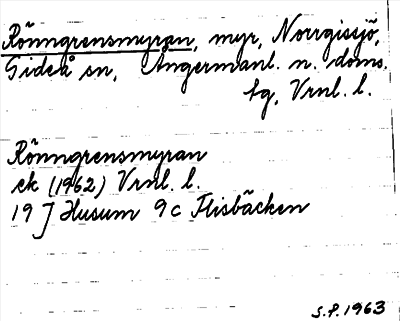 Rönngrensmyran, myr, Norrgissjö,
Gideå sn, Ångermanl. n. doms.
fg, Vrnl. l.
Rönngrensmyran
ek (1962) Vrnl. l.
19 J Husum 9c Flisbäcken
S.P. 1963